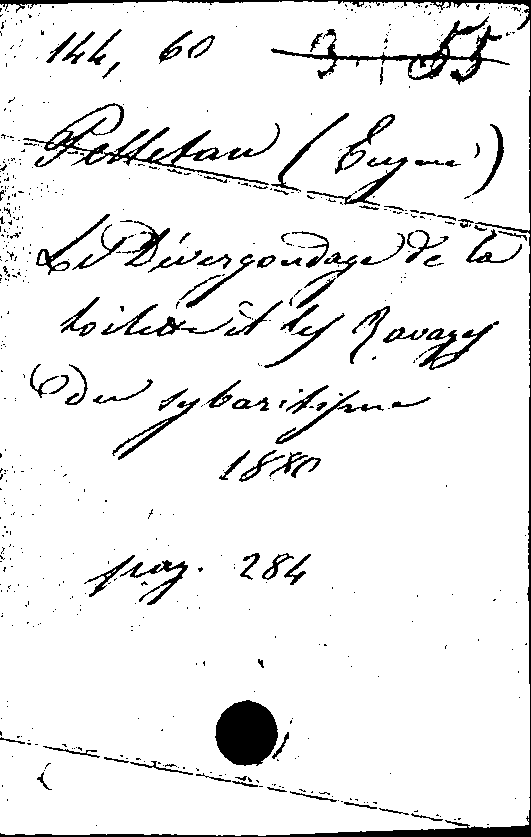 144, 60 3 55
Pelletan (Eugène)
Le Dévergondage de la
toilette et les Ravages
du sybaritisme
1880
pag. 284